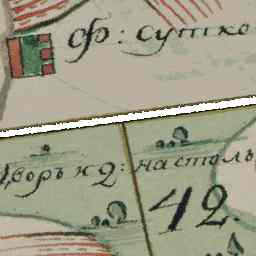 ф: сутко
дворъ н 2: настоль
42.